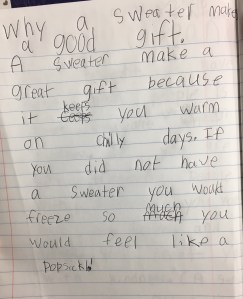 Why a sweater make
a good gift.
A sweater make a
great gift because
keeps
it you warm
on chilly days. If
you did not have
a sweater you would
much
freeze so much you
would feel like a
popsickl!